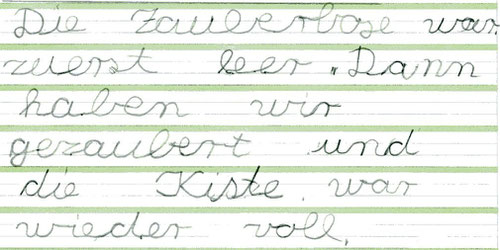 Die Zauberbose war
zuerst leer. Dann
haben wir
gezaubert und
die Kiste war
wieder voll.